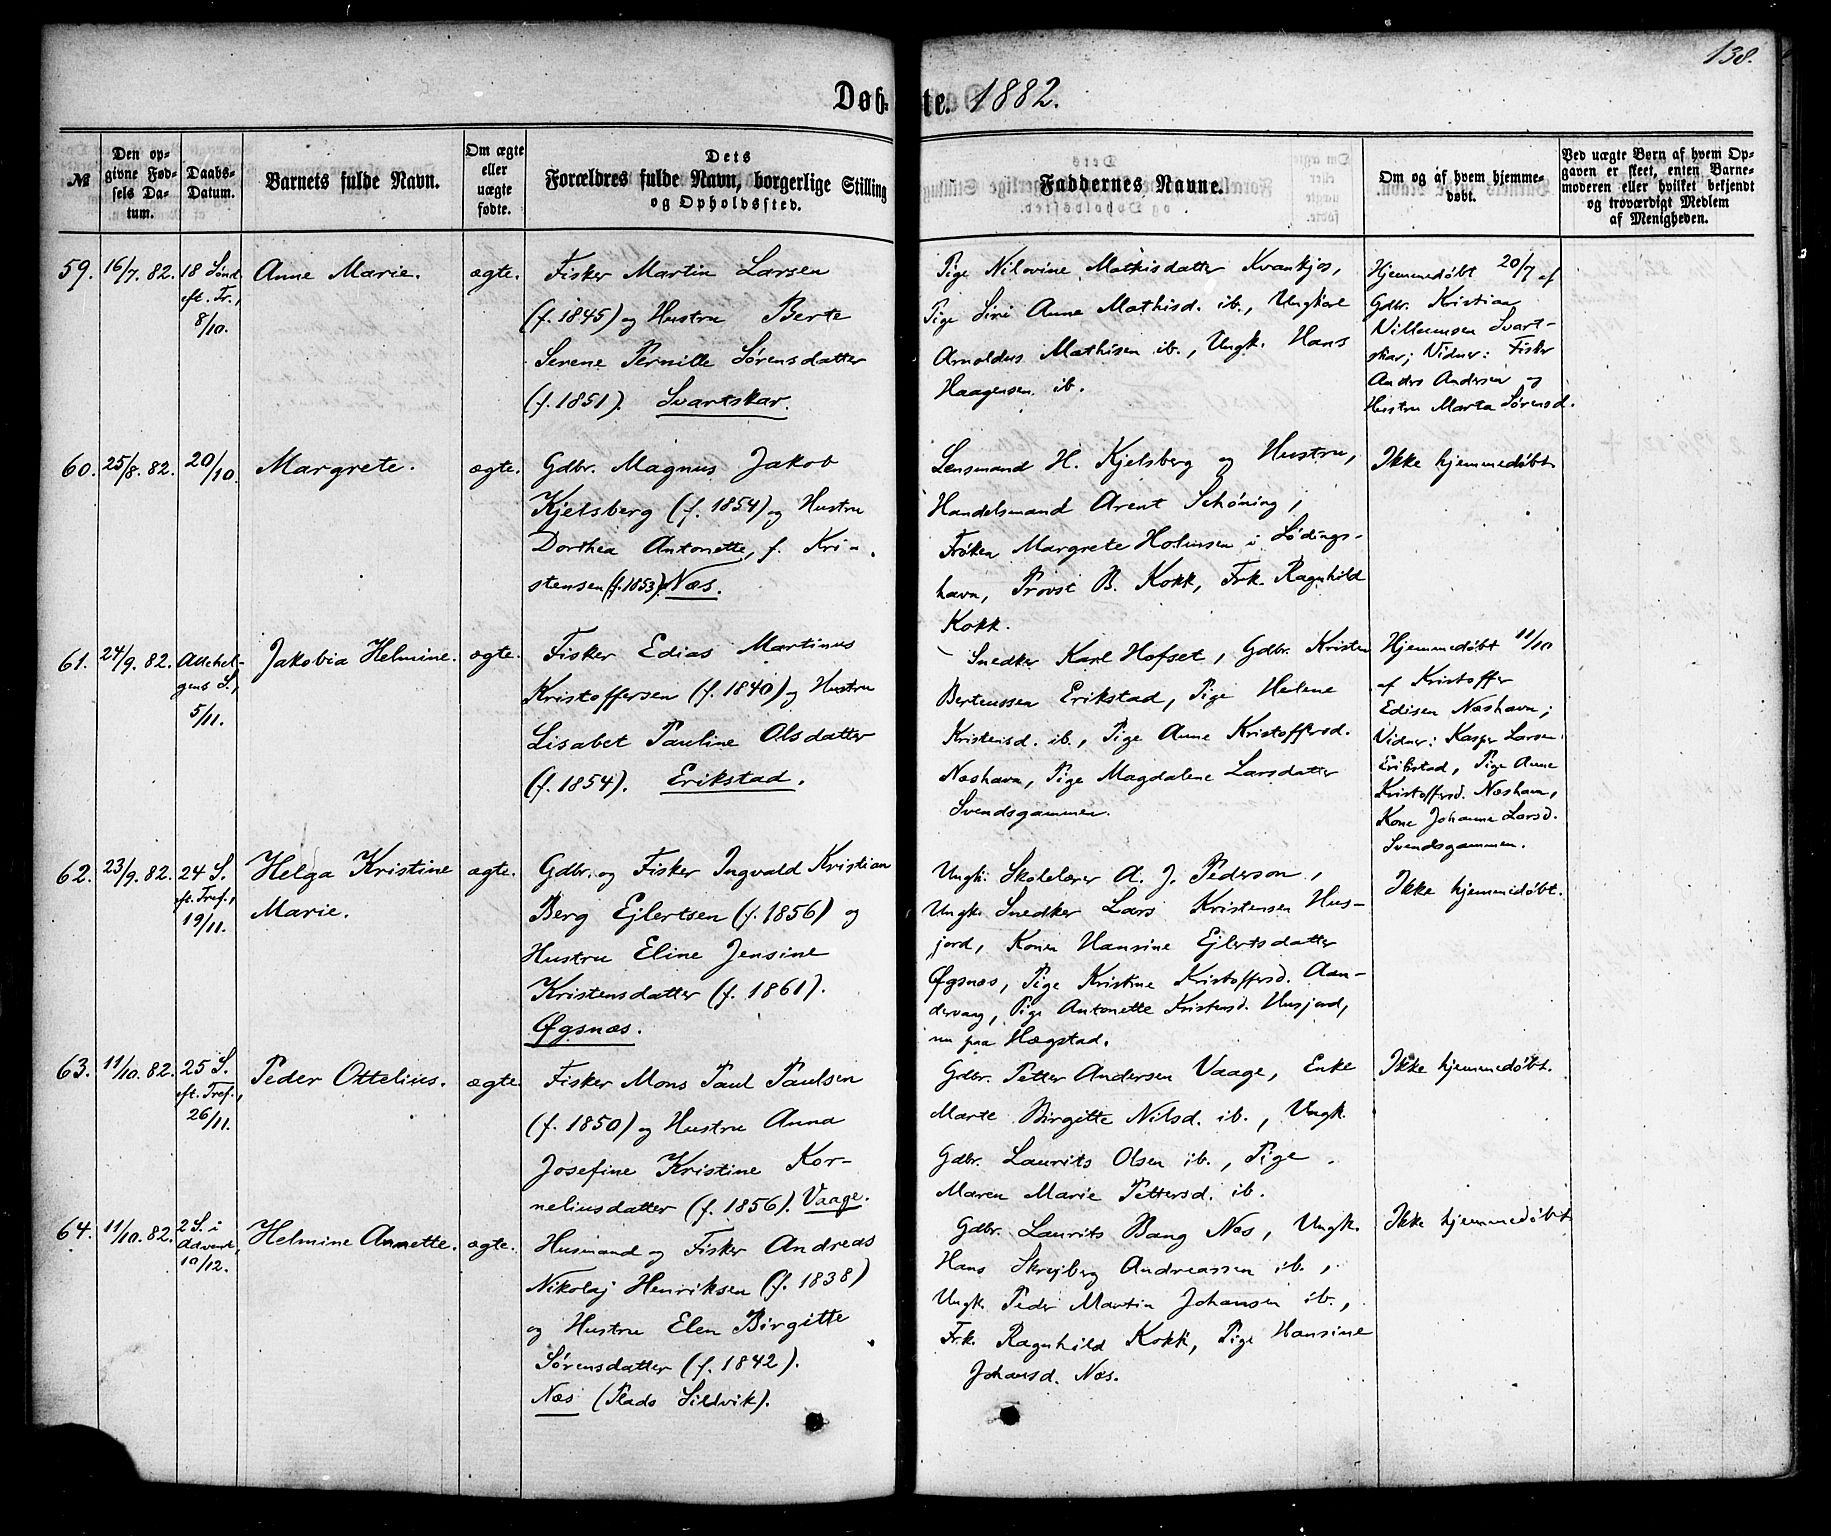 138.
Døb- te. 1882.
№
Den op-
givne Fød-
sels Da-
tum.
Daabs-
Datum.
Barnets fulde Navn.
Om ægte
eller
uægte
fødte.
Dets
Forældres fulde Navn, borgerlige Stilling
og Opholdssted.
Faddernes Navne.
Om og af hvem hjemme-
døbt.
Ved uægte Børn af hvem Op-
gaven er skeet, enten Barne-
moderen eller hvilket bekjendt
og troværdigt Medlem
af Menigheden.
59.
16/7. 82.
18 Sønd.
eft. Tr.,
8/10.
Anne Marie.
ægte.
Fisker Martin Larsen
(f. 1845) og Hustru Berte
Serene Pernille Sørensdatter
(f. 1851). Svartskar.
Pige Nilovine Mathisdatter Kvankjos,
Pige Sini Anne Mathisd. ib., Ungkarl
Arnoldus Mathisen ib., Ungk. Hans
Haagensen ib.
Hjemmedøbt 20/7 af
Gdbr. Kristian
Villumsen Svart-
skar; Vidner: Fisker
Anders Andersen og
Hustru Marta Sørensd.
60.
25/8. 82.
20/10.
Margrete.
ægte.
Gdbr. Magnus Jakob
Kjelsberg (f. 1854) og Hustru
Dorthea Antonette, f. Kri-
stensen (f. 1853). Næs.
Lensmand H. Kjelsberg og Hustru,
Handelsmand Arent Schøning,
Frøken Margrete Holmsen i Lødings-
havn, Provst B. Kokk, Frk. Ragnhild
Kokk.
Ikke hjemmedøbt
61.
24/9. 82.
Allehel-
gens S.,
5/11.
Jakobia Helmine.
ægte.
Fisker Edias Martinus
Kristoffersen (f. 1840) og Hustru
Lisabet Pauline Olsdatter
(f. 1854). Erikstad.
Snedker Karl Hofset, Gdbr. Kristen
Berteussen Erikstad, Pige Helene
Kristensd. ib., Pige Anne Kristoffersd.
Næshavn, Pige Magdalene Larsdatter
Svendsgammen.
Hjemmedøbt 11/10
af Kristoffer
Edisen Næshavn;
Vidner: Kasper Larsen
Erikstad, Pige Anne
Kristoffersd. Næshavn,
Kone Johanna Larsd.
Svendsgammen.
62.
23/9. 82.
24 S.
eft. Tref.,
19/11.
Helga Kristine
Marie.
ægte.
Gdbr. og Fisker Ingvald Kristian
Berg Ejlertsen (f. 1856) og
Hustru Eline Jensine
Kristensdatter (f. 1861).
Øgsnæs.
Ungk. Skolelærer A. J. Pederson,
Ungk. Snedker Lars Kristensen Hus-
jord, Konen Hansine Ejlertsdatter
Øgsnæs, Pige Kristine Kristoffersd. Aan-
dervaag, Pige Antonette Kristensd. Husjord,
nu paa Hægstad.
Ikke hjemmedøbt.
63.
11/10. 82.
25 S.
eft. Tref.,
26/11.
Peder Ottelius.
ægte.
Fisker Mons Paul Paulsen
(f. 1850) og Hustru Anna
Josefine Kristine Kor-
neliusdatter (f. 1856). Vaage.
Gdbr. Petter Andersen Vaage, Enke
Marte Birgitte Nilsd. ib., Ungk.
Gdbr. Laurits Olsen ib., Pige
Maren Marie Pettersd. ib.
Ikke hjemmedøbt.
64.
11/10. 82.
2 S. i
Advent,
10/12.
Helmine Annette.
ægte.
Husmand og Fisker Andreas
Nikolaj Henriksen (f. 1838)
og Hustru Elen Birgitte
Sørensdatter (f. 1842).
Næs (Plads Sildvik).
Gdbr. Laurits Bang Næs, Ungk.
Hans Skrejberg Andreassen ib.,
Ungk. Peder Martin Johansen ib.,
Frk. Ragnhild Kokk, Pige Hansine
Johansd. Næs.
Ikke hjemmedøbt